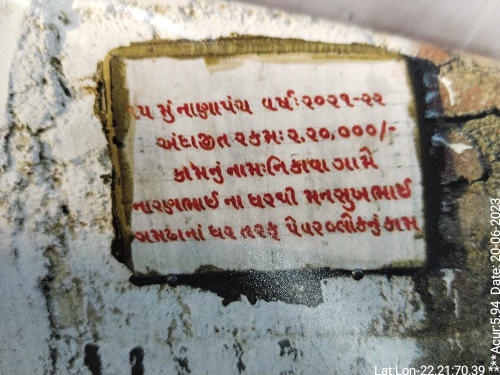 ૧૫ મું નાણાપંચ વર્ષ:૨૦૨૧-૨૨
અંદાજીત રકમ: રૂ.૨૦,૦૦૦/-
કામનું નામ:નિકાવા ગામે
નારણભાઈ ના ઘરથી મનસુખભાઈ
ગમઢાનાં ઘર તરફ પેવર બ્લોકનું કામ
Lat:Lon-22.21:70.39
***Acur:5.94 Date: 20-06-2023